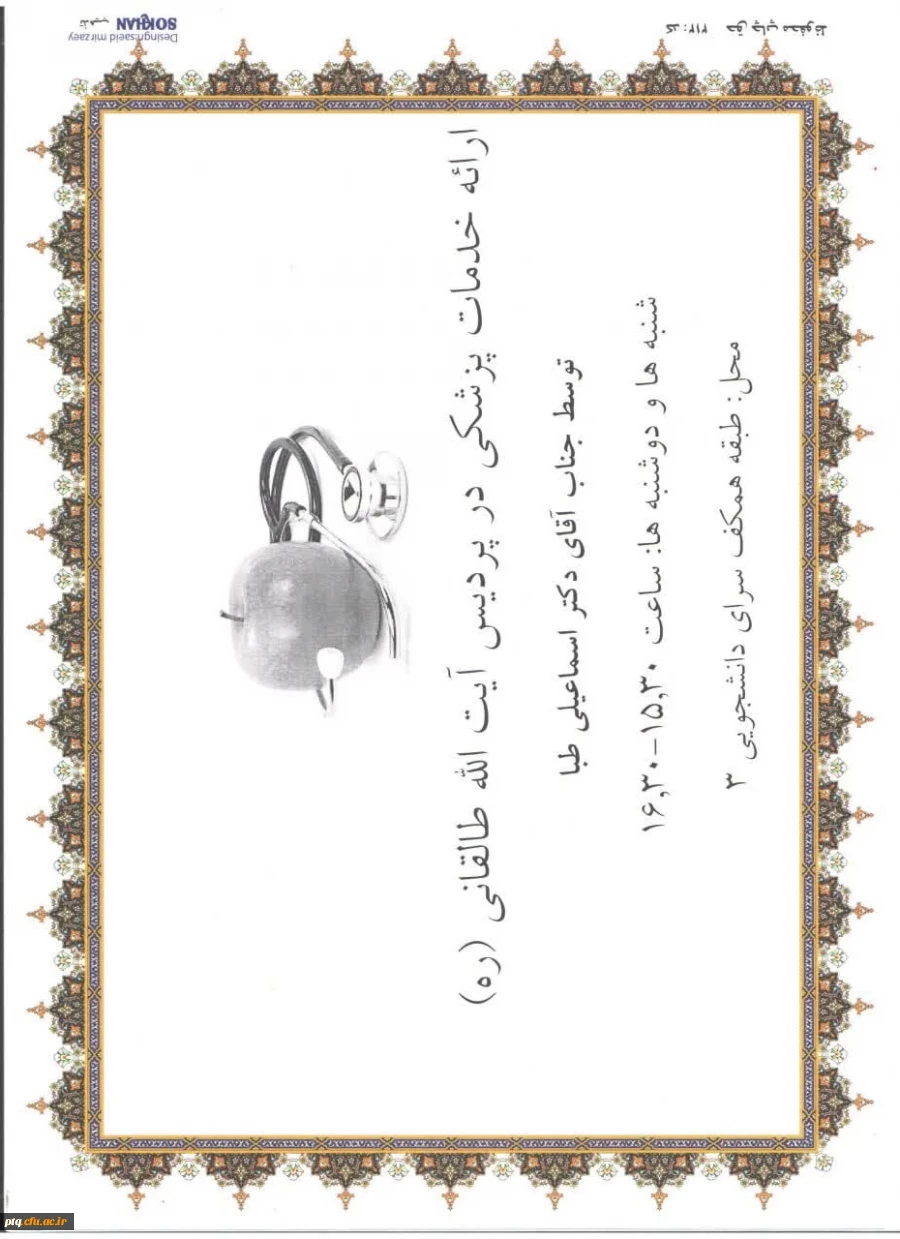 ارائه خدمات پزشکی در پردیس آیت الله طالقانی (ره)
توسط جناب آقای دکتر اسماعیلی طبا
شنبه ها و دوشنبه ها: ساعت ۱۵,۳۰-۱۶,۳۰
محل: طبقه همکف سرای دانشجویی ۳
حق چاپ محفوظ کد: ۲۱۲
SOKHAN
Desingn:saeid mirzaey
ptq.cfu.ac.ir